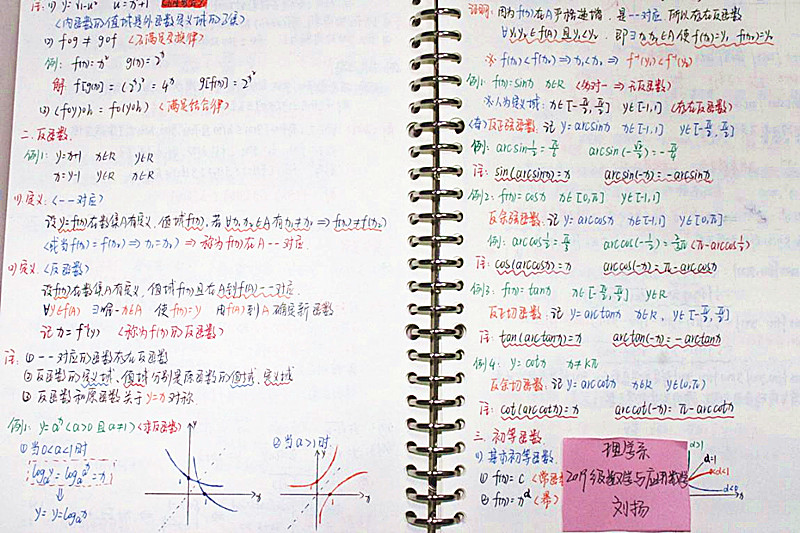 注: (1) y=√1-u² u=x²+1
<内函数的值域是外函数定义域的子集>
(2) f∘g ≠ g∘f <不满足交换律>
例: f(x)=x² g(x)=2ˣ
解 f[g(x)]=(2ˣ)²=4ˣ g[f(x)]=2^x²
(3) (f∘g)∘h = f∘(g∘h) <满足结合律>
二. 反函数
例1: y=x+1 x∈R y∈R
x=y-1 y∈R x∈R
(1) 定义: <一一对应>
设y=f(x)在数集A有定义, 值域f(A), 若∀x₁,x₂∈A 有x₁≠x₂ ⇒ f(x₁)≠f(x₂)
<或当f(x₁)=f(x₂) ⇒ x₁=x₂> ⇒ 称为f(x)在A一一对应
(2) 定义: <反函数>
设f(x)在数集A有定义, 值域f(A)且在A到f(A)一一对应
∀y∈f(A) ∃唯一x∈A 使f(x)=y 由f(A)到A确定新函数
记 x=f⁻¹(y) <称为f(x)的反函数>
注: ① 一一对应的函数存在反函数
② 反函数的定义域, 值域分别是原函数的值域, 定义域
③ 反函数和原函数关于y=x对称
例1: y=aˣ <a>0且a≠1> <求反函数>
① 当0<a<1时
logₐy=logₐaˣ=x
y=logₐx
② 当a>1时
证明: 因为f(x)在A严格递增, 是一一对应, 所以存在反函数
∀y₁,y₂∈f(A)且y₁<y₂, 即∃x₁,x₂∈A使f(x₁)=y₁, f(x₂)=y₂
※ f(x₁)<f(x₂) ⇒ x₁<x₂ ⇒ f⁻¹(y₁)<f⁻¹(y₂)
例1: f(x)=sinx x∈R <多对一 ⇒ 无反函数>
※ 人为定义域: x∈[-π/2,π/2] y∈[-1,1] <存在反函数>
反正弦函数: 记 y=arcsinx x∈[-1,1] y∈[-π/2,π/2]
例: arcsin½=π/6 arcsin(-√2/2)=-π/4
注: sin(arcsinx)=x arcsin(-x)=-arcsinx
例2: f(x)=cosx x∈[0,π] y∈[-1,1]
反余弦函数: 记 y=arccosx x∈[-1,1] y∈[0,π]
例: arccos½=π/3 arccos(-½)=⅔π <π-arccos½>
注: cos(arccosx)=x arccos(-x)=π-arccosx
例3: f(x)=tanx x∈[-π/2,π/2] y∈R
反正切函数: 记 y=arctanx x∈R, y∈[-π/2,π/2]
注: tan(arctanx)=x arctan(-x)=-arctanx
例4: y=cotx x≠kπ
反余切函数: 记 y=arccotx x∈R y∈(0,π)
注: cot(arccotx)=x arccot(-x)=π-arccotx
三. 初等函数
(1) 基本初等函数
① f(x)=C
② f(x)=x^α
理学系
2019级数学与应用数学
刘扬